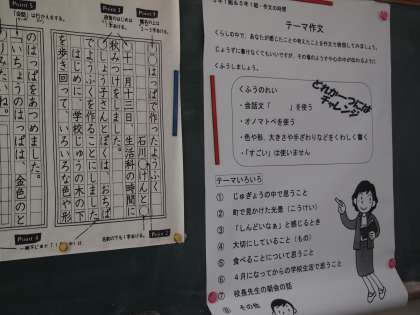 Point 5
「会話」は行がえする。
Point 3
Point 1
○○はっぱで作ったようふく
石川 けんと
十一月十三日、生活科の時間に
秋みつけをしました。
しょう子さんとぼくは、おちば
でようふくを作ることにしました
はじめに、学校じゅうの木の下
を歩き回って、いろいろな色や形
のはっぱをあつめました。
いちょうのはっぱは、金色のと
りみたいね。
Point 4
Point 2
テーマ作文
くらしの中で、あなたが感じたことや考えたことを作文で表現してみましょう。
じょうずに書けなくてもいいですが、その時のようすや心の中が伝わるように
くふうしましょう。
どれか一つには
チャレンジ
くふうのれい
・会話文「　　」を使う
・オノマトペを使う
・色や形、大きさや手ざわりなどをくわしく書く
・「すごい」は使いません
テーマいろいろ
① じゅぎょうの中で思うこと
② 町で見かけた光景（こうけい）
③ 「しんどいなあ」と感じるとき
④ 大切にしていること（もの）
⑤ 食べることについて思うこと
⑥ 4月になってからの学校生活で思うこと
⑦ 校長先生の朝会の話
⑧ その他